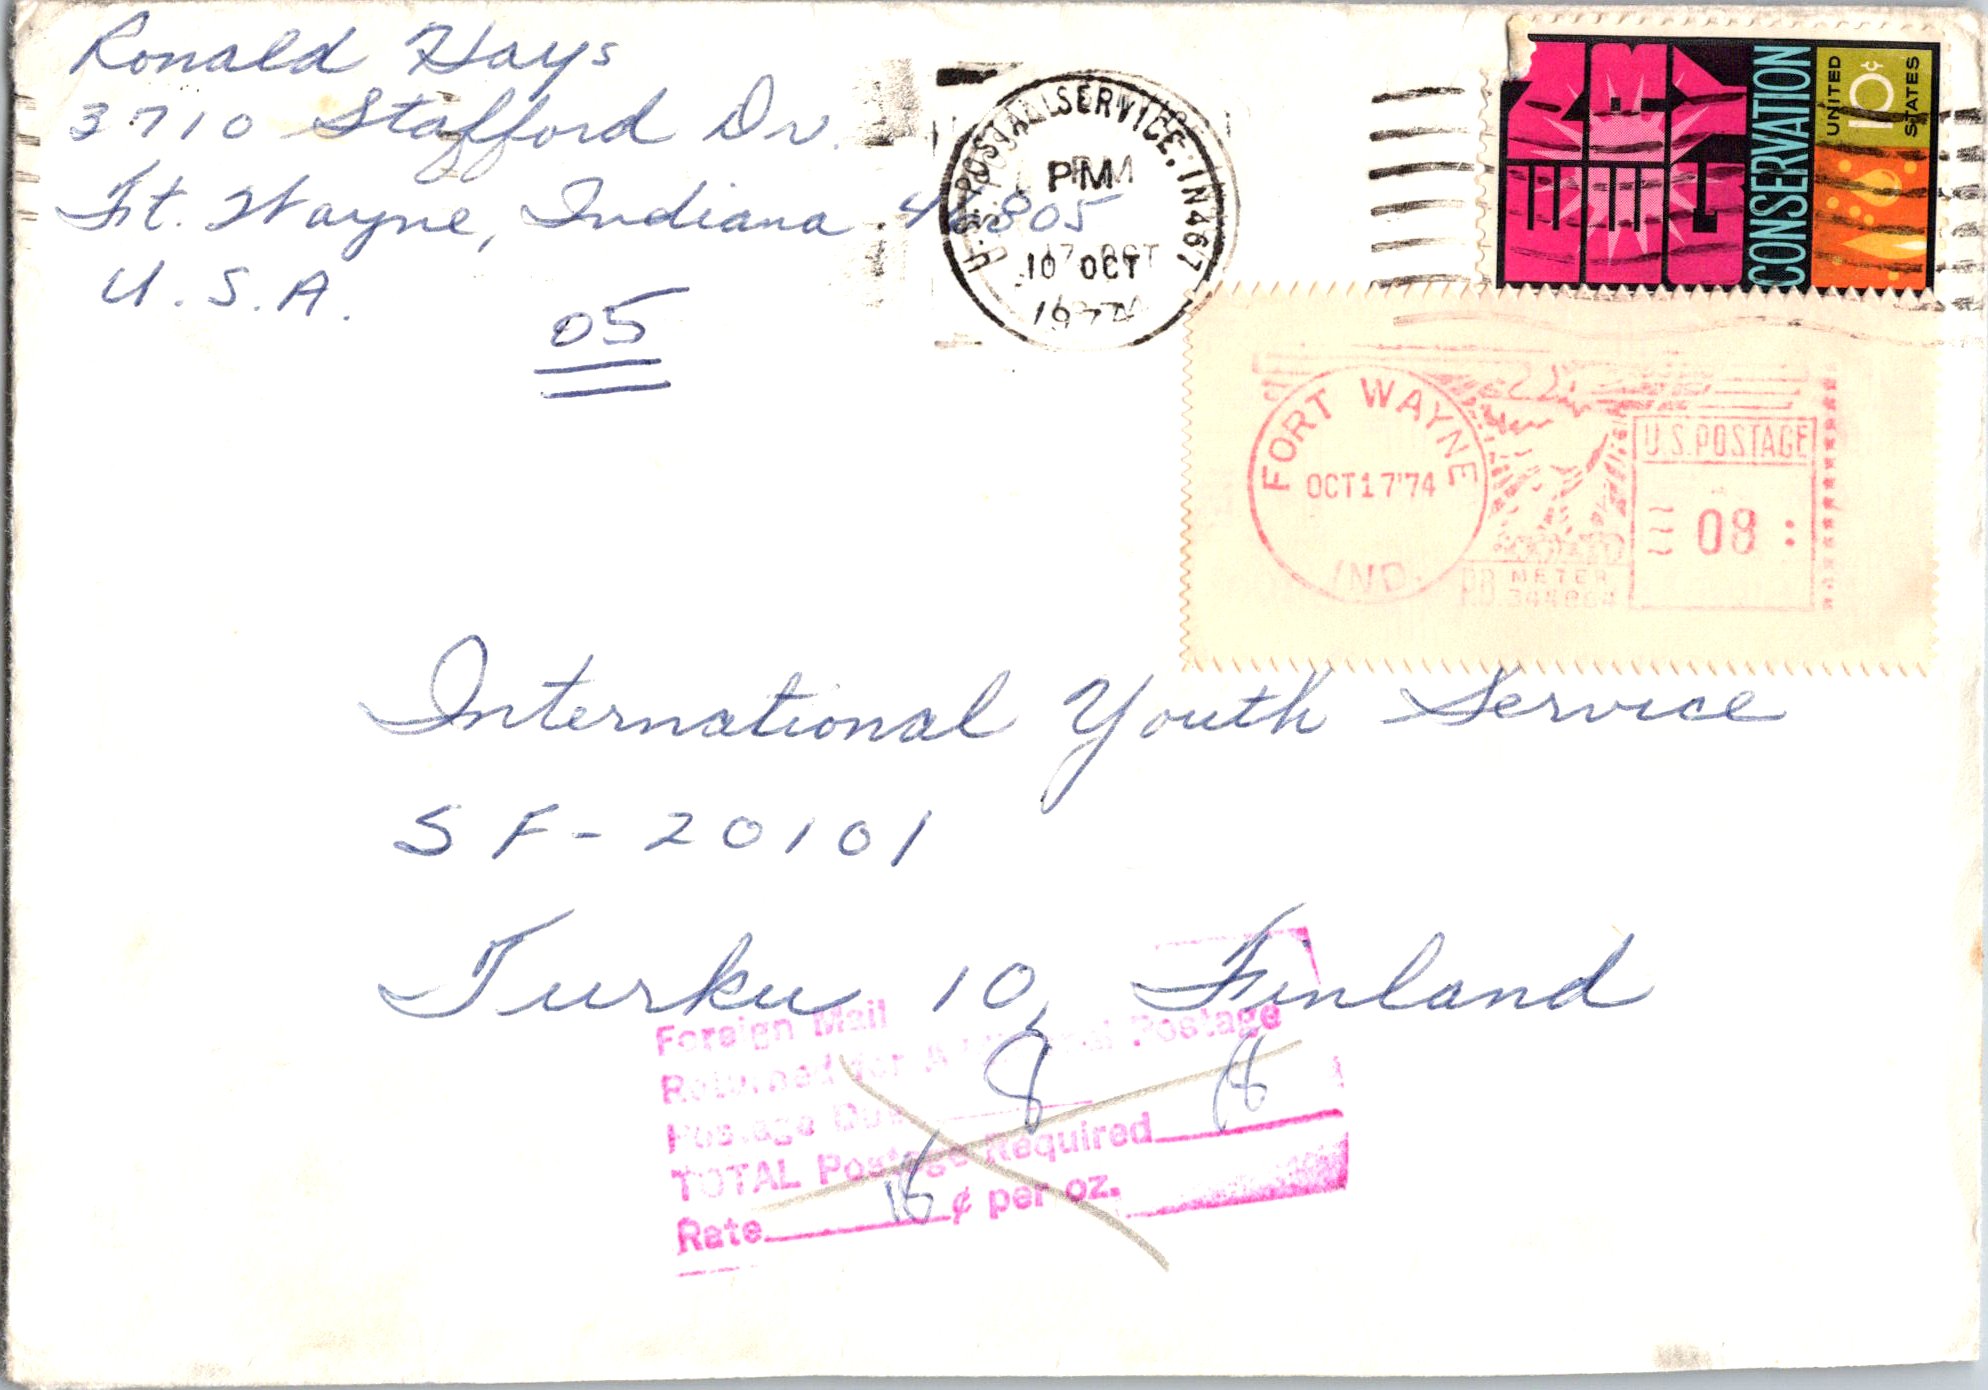 Ronald Hays
3710 Stafford Dr.
Ft. Wayne, Indiana 46805
U.S.A.
05
U.S. POSTAL SERVICE, IN 467
PM
17 OCT
1974
ENERGY
CONSERVATION
UNITED STATES
10¢
FORT WAYNE
OCT 17 '74
IND.
U.S. POSTAGE
08
P.B. METER
International Youth Service
SF-20101
Turku 10, Finland
Foreign Mail
Returned for Additional Postage
Postage Due 8
TOTAL Postage Required 18
Rate 18 ¢ per oz.